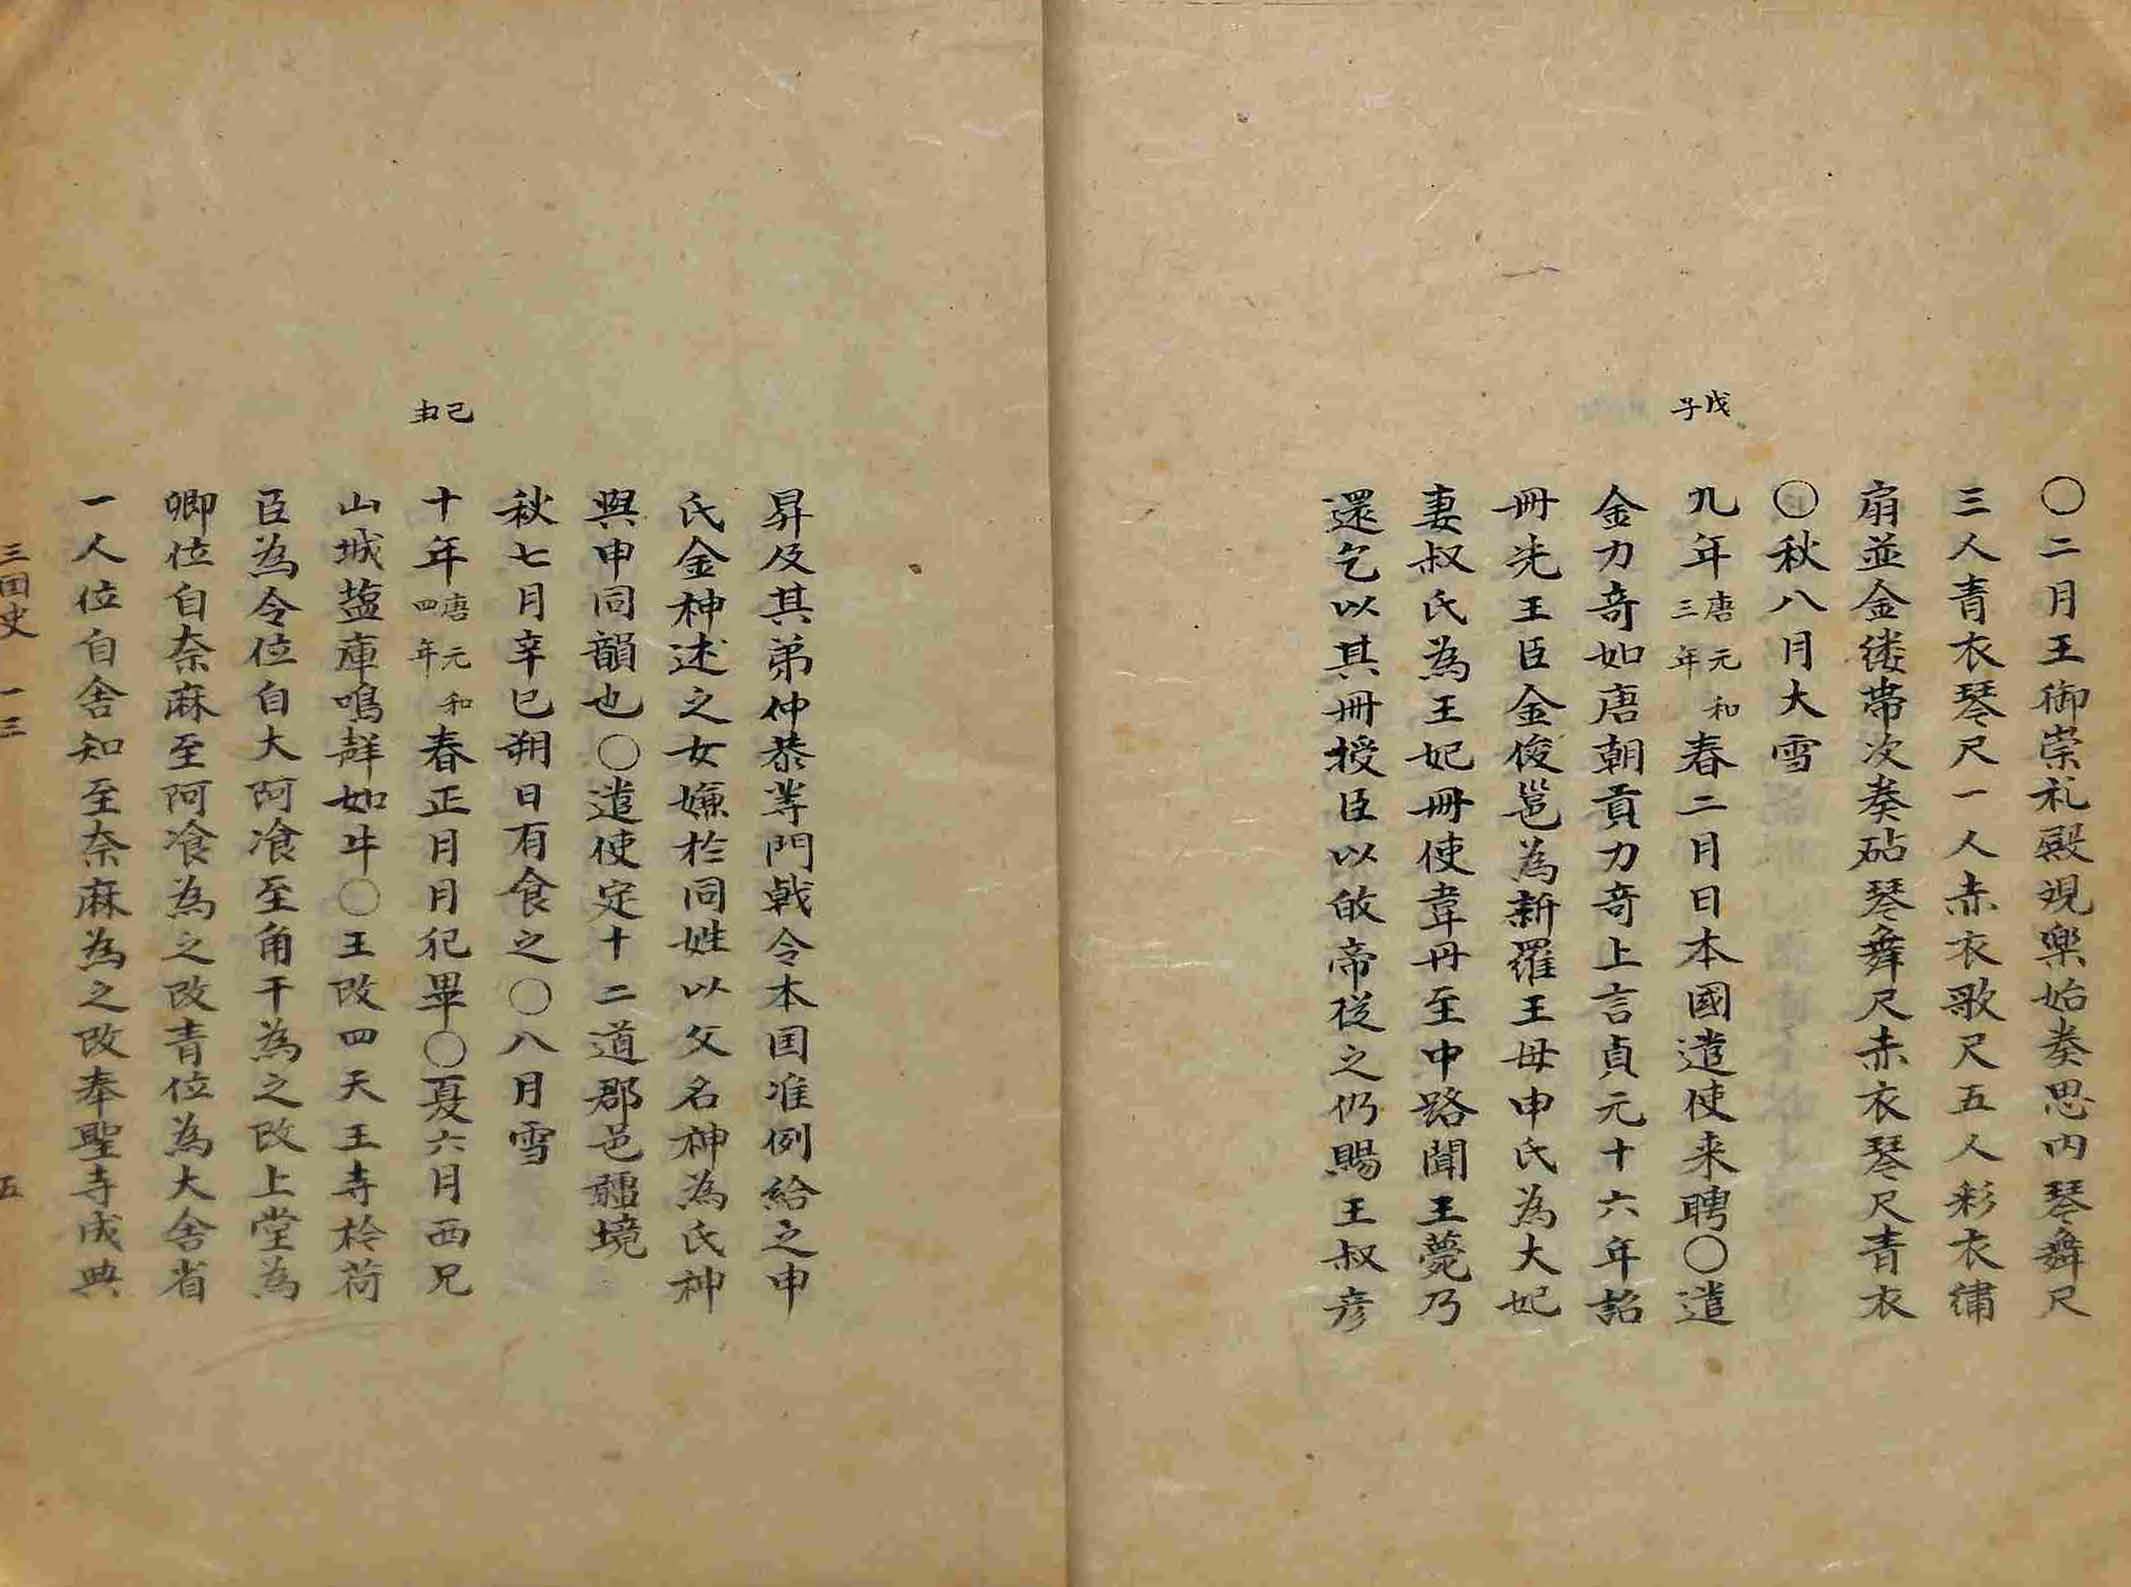 〇二月王御崇礼殿覌樂始奏思内琴舞尺
三人青衣琴尺一人赤衣歌尺五人彩衣繡
扇並金縷帯次奏碪琴舞尺赤衣琴尺青衣
〇秋八月大雪
戊子
九年唐元和三年春二月日本國遣使来聘〇遣
金力竒如唐朝貢力竒上言貞元十六年詔
冊先王臣金俊邕為新羅王母申氏為大妃
妻叔氏為王妃冊使韋丹至中路聞王薨乃
還乞以其冊授臣以敀帝従之仍賜王叔彦
昇及其弟仲恭等門戟令本国准例給之申
氏金神述之女嫌於同姓以父名神為氏神
與申同韻也〇遣使定十二道郡邑疆境
秋七月辛巳朔日有食之〇八月雪
己丑
十年唐元和四年春正月月犯畢〇夏六月西兄
山城塩庫鳴聲如牛〇王改四天王寺於荷
臣為令位自大阿飡至角干為之改上堂為
卿位自奈麻至阿飡為之改青位為大舍省
一人位自舍知至奈麻為之改奉聖寺成典
三国史 一三 五